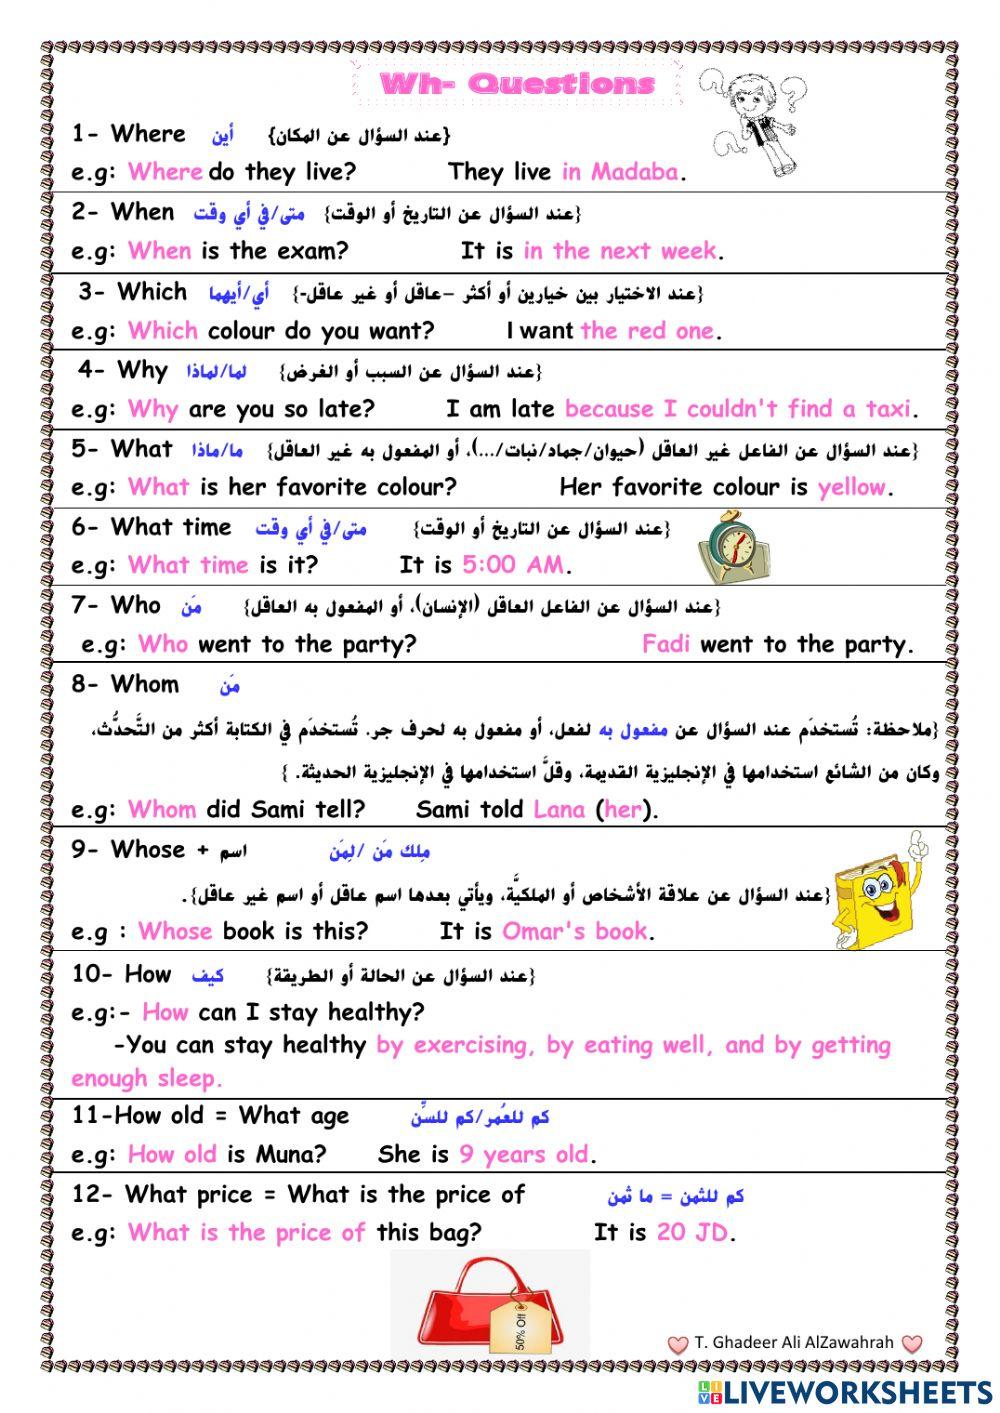 Wh- Questions
1- Where أين {عند السؤال عن المكان}
e.g: Where do they live? They live in Madaba.
2- When متى/في أي وقت {عند السؤال عن التاريخ أو الوقت}
e.g: When is the exam? It is in the next week.
3- Which أي/أيهما {عند الاختيار بين خيارين أو أكثر –عاقل أو غير عاقل-}
e.g: Which colour do you want? I want the red one.
4- Why لما/لماذا {عند السؤال عن السبب أو الغرض}
e.g: Why are you so late? I am late because I couldn't find a taxi.
5- What ما/ماذا {عند السؤال عن الفاعل غير العاقل (حيوان/جماد/نبات/...)، أو المفعول به غير العاقل}
e.g: What is her favorite colour? Her favorite colour is yellow.
6- What time متى/في أي وقت {عند السؤال عن التاريخ أو الوقت}
e.g: What time is it? It is 5:00 AM.
7- Who مَن {عند السؤال عن الفاعل العاقل (الإنسان)، أو المفعول به العاقل}
e.g: Who went to the party? Fadi went to the party.
8- Whom مَن
{ملاحظة: تُستخدَم عند السؤال عن مفعول به لفعل، أو مفعول به لحرف جر. تُستخدَم في الكتابة أكثر من التَّحدُّث،
وكان من الشائع استخدامها في الإنجليزية القديمة، وقلَّ استخدامها في الإنجليزية الحديثة. }
e.g: Whom did Sami tell? Sami told Lana (her).
9- Whose + اسم مِلك مَن /لِمَن
{عند السؤال عن علاقة الأشخاص أو الملكيَّة، ويأتي بعدها اسم عاقل أو اسم غير عاقل}.
e.g : Whose book is this? It is Omar's book.
10- How كيف {عند السؤال عن الحالة أو الطريقة}
e.g:- How can I stay healthy?
-You can stay healthy by exercising, by eating well, and by getting
enough sleep.
11-How old = What age كم للعُمر/كم للسِّن
e.g: How old is Muna? She is 9 years old.
12- What price = What is the price of كم للثمن = ما ثمن
e.g: What is the price of this bag? It is 20 JD.
50% Off
T. Ghadeer Ali AlZawahrah
LIVEWORKSHEETS